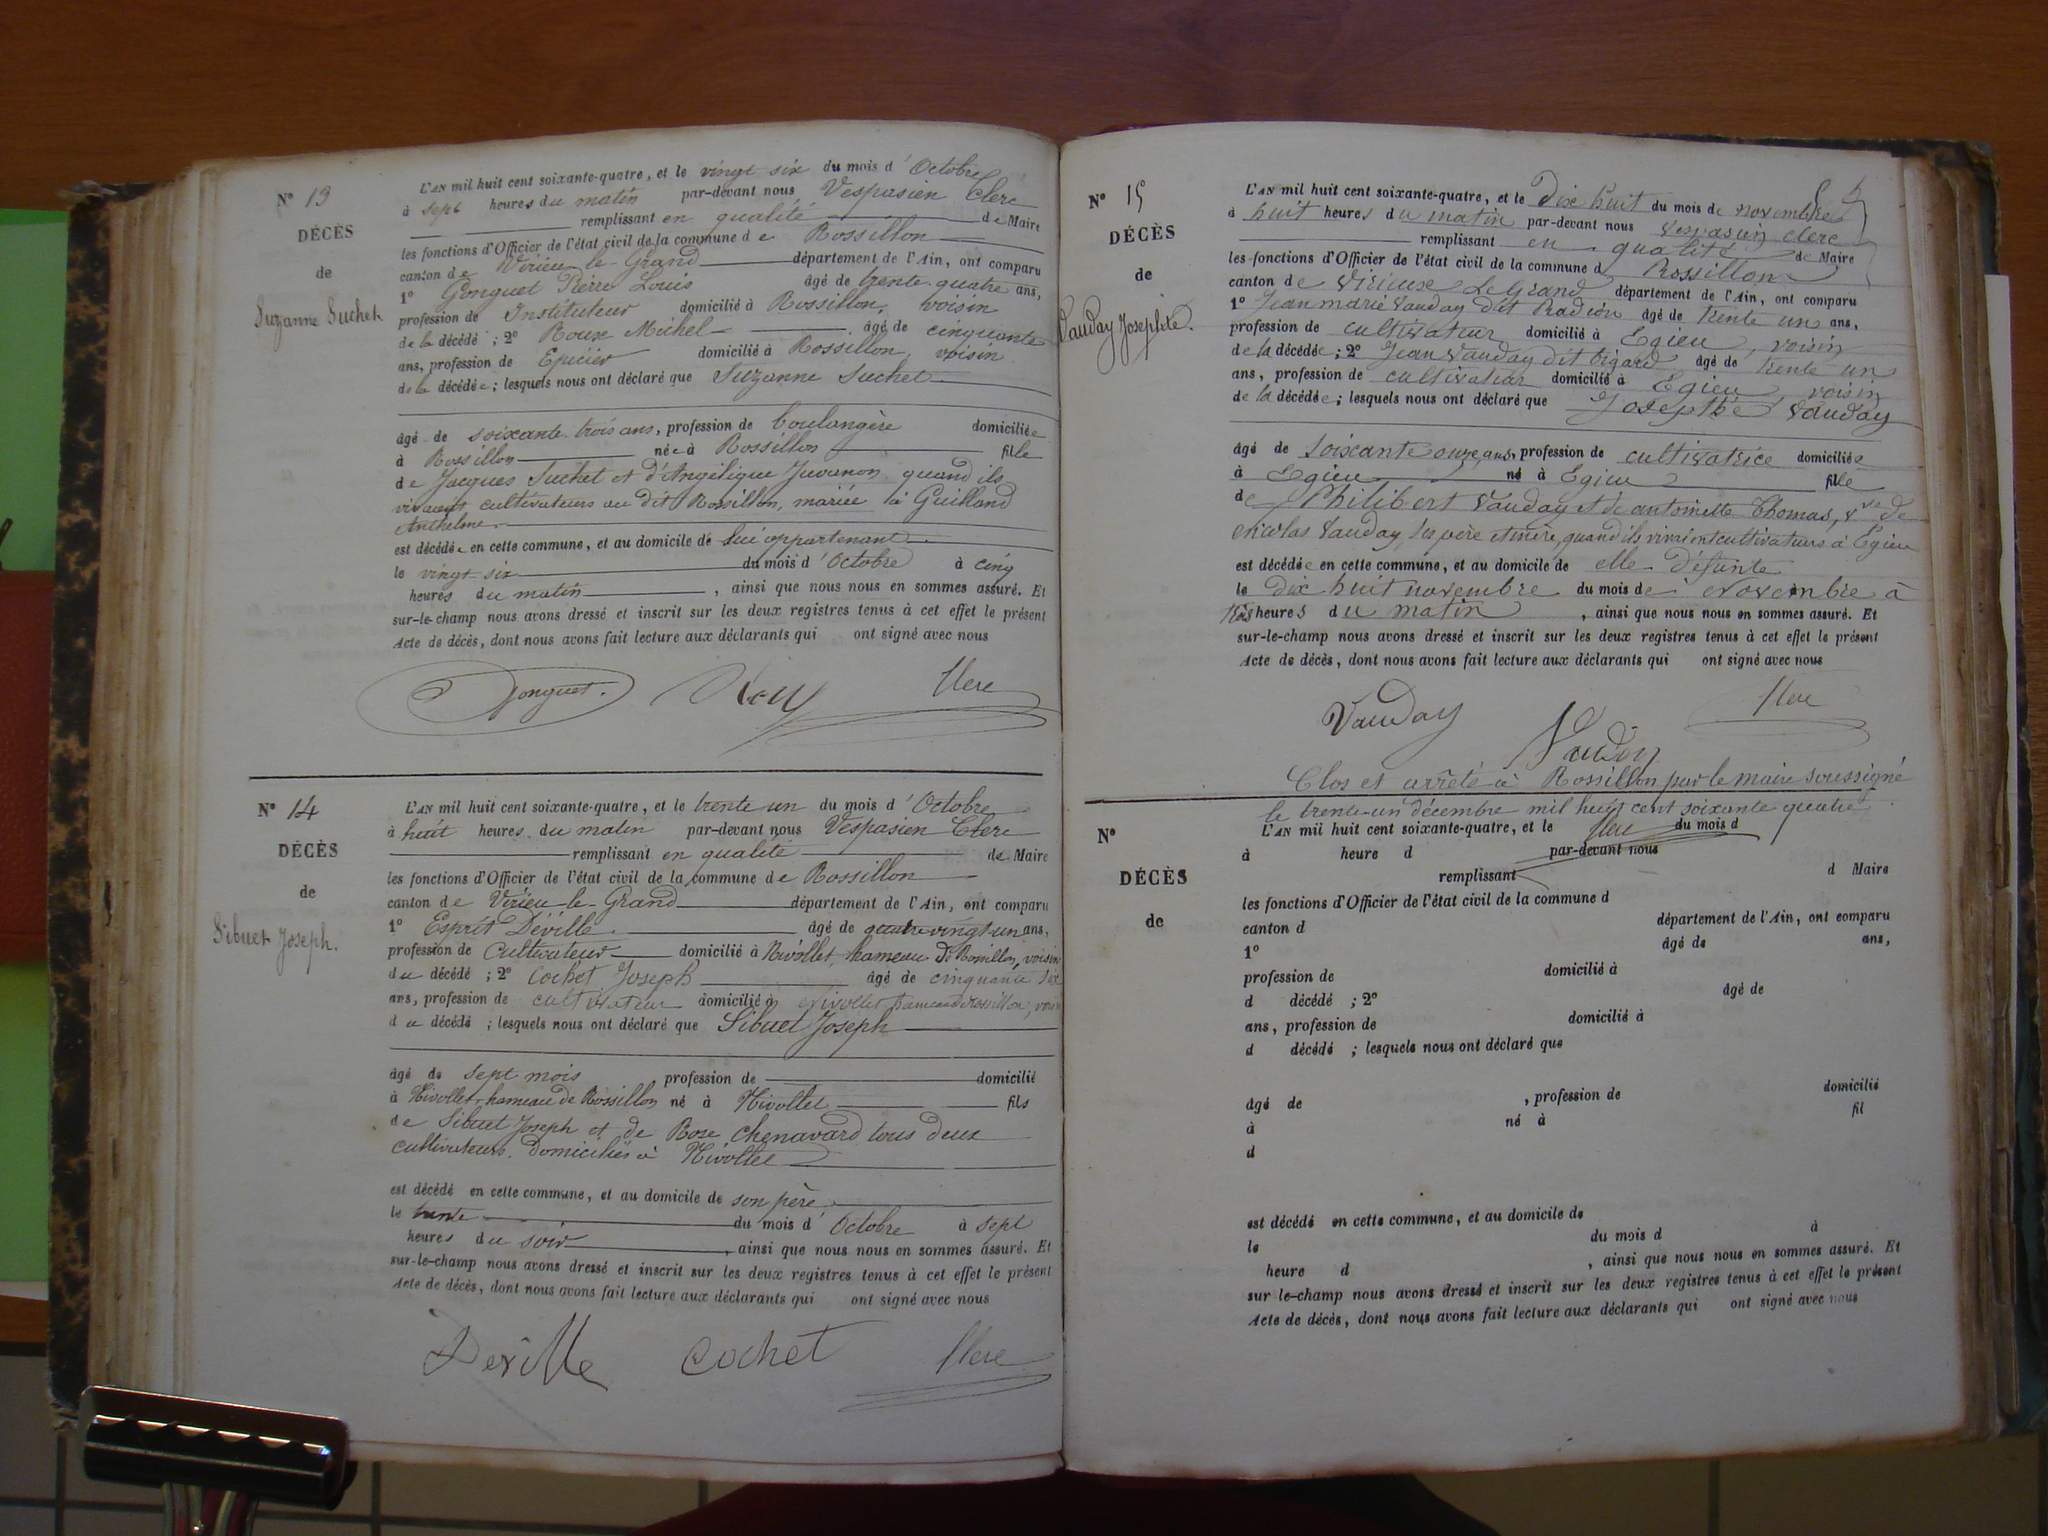 N° 13
DÉCÈS
de
Suzanne Suchet
L'AN mil huit cent soixante-quatre, et le vingt six du mois d'Octobre
à sept heures du matin par-devant nous Vespasien Clerc
remplissant en qualité de Maire
les fonctions d'Officier de l'état civil de la commune de Rossillon
canton de Virieu-le-Grand département de l'Ain, ont comparu
1° Gonguet Pierre Louis âgé de trente-quatre ans,
profession de Instituteur domicilié à Rossillon, voisin
de la décédé ; 2° Roux Michel âgé de cinquante
ans, profession de Epicier domicilié à Rossillon, voisin
de la décédée ; lesquels nous ont déclaré que Suzanne Suchet
âgé de soixante-trois ans, profession de boulangère domiciliée
à Rossillon née à Rossillon fille
de Jacques Suchet et d'Angélique Juvanon quand ils
vivaient cultivateurs au dit Rossillon, mariée à Guilland
Anthelme
est décédée en cette commune, et au domicile de lui appartenant
le vingt-six du mois d'Octobre à cinq
heures du matin, ainsi que nous nous en sommes assuré. Et
sur-le-champ nous avons dressé et inscrit sur les deux registres tenus à cet effet le présent
Acte de décès, dont nous avons fait lecture aux déclarants qui ont signé avec nous
Gonguet Clerc
N° 14
DÉCÈS
de
Sibuet Joseph.
L'AN mil huit cent soixante-quatre, et le trente un du mois d'Octobre
à huit heures du matin par-devant nous Vespasien Clerc
remplissant en qualité de Maire
les fonctions d'Officier de l'état civil de la commune de Rossillon
canton de Virieu-le-Grand département de l'Ain, ont comparu
1° Esprit Déville âgé de quatre vingt un ans,
profession de Cultivateur domicilié à Nivollet, hameau de Rossillon, voisin
du décédé ; 2° Cochet Joseph âgé de cinquante six
ans, profession de cultivateur domicilié à Nivollet hameau de rossillon, voisin
du décédé ; lesquels nous ont déclaré que Sibuet Joseph
âgé de sept mois profession de domicilié
à Nivollet, hameau de Rossillon né à Nivollet fils
de Sibuet Joseph et de Rose Chenavard tous deux
cultivateurs domiciliés à Nivollet
est décédé en cette commune, et au domicile de son père
le trente du mois d'Octobre à sept
heures du soir, ainsi que nous nous en sommes assuré. Et
sur-le-champ nous avons dressé et inscrit sur les deux registres tenus à cet effet le présent
Acte de décès, dont nous avons fait lecture aux déclarants qui ont signé avec nous
Deville Cochet Clerc
N° 15
DÉCÈS
de
Vauday Josephte.
L'AN mil huit cent soixante-quatre, et le Dix huit du mois de novembre
à huit heures du matin par-devant nous Vespasien clerc
remplissant en qualité de Maire
les fonctions d'Officier de l'état civil de la commune d Rossillon
canton de Virieux Le Grand département de l'Ain, ont comparu
1° Jean marie Vauday dit Radion âgé de trente un ans,
profession de cultivateur domicilié à Egieu, voisin
de la décédée ; 2° Jean Vauday dit bigard âgé de trente un
ans, profession de cultivateur domicilié à Egieu, voisin
de la décédée ; lesquels nous ont déclaré que Josephte Vauday
âgé de soixante onze ans, profession de cultivatrice domiciliée
à Egieu né à Egieu fille
de Philibert Vauday et de antoinette Thomas, vve de
Nicolas Vauday, ses père et mère, quand ils vivaient cultivateurs à Egieu
est décédée en cette commune, et au domicile de elle défunte
le Dix huit novembre du mois de Novembre à
trois heures du matin, ainsi que nous nous en sommes assuré. Et
sur-le-champ nous avons dressé et inscrit sur les deux registres tenus à cet effet le présent
Acte de décès, dont nous avons fait lecture aux déclarants qui ont signé avec nous
Vauday Clerc
Vauday
Clos et arrêté à Rossillon par le maire soussigné
le trente-un décembre mil huit cent soixante quatre.
Clerc
N°
DÉCÈS
de
L'AN mil huit cent soixante-quatre, et le du mois d
à heure d par-devant nous
remplissant d Maire
les fonctions d'Officier de l'état civil de la commune d
canton d département de l'Ain, ont comparu
1° âgé de ans,
profession de domicilié à
d décédé ; 2° âgé de
ans, profession de domicilié à
d décédé ; lesquels nous ont déclaré que
âgé de , profession de domicilié
à né à fil
d
est décédé en cette commune, et au domicile de
le du mois d à
heure d , ainsi que nous nous en sommes assuré. Et
sur le-champ nous avons dressé et inscrit sur les deux registres tenus à cet effet le présent
Acte de décès, dont nous avons fait lecture aux déclarants qui ont signé avec nous